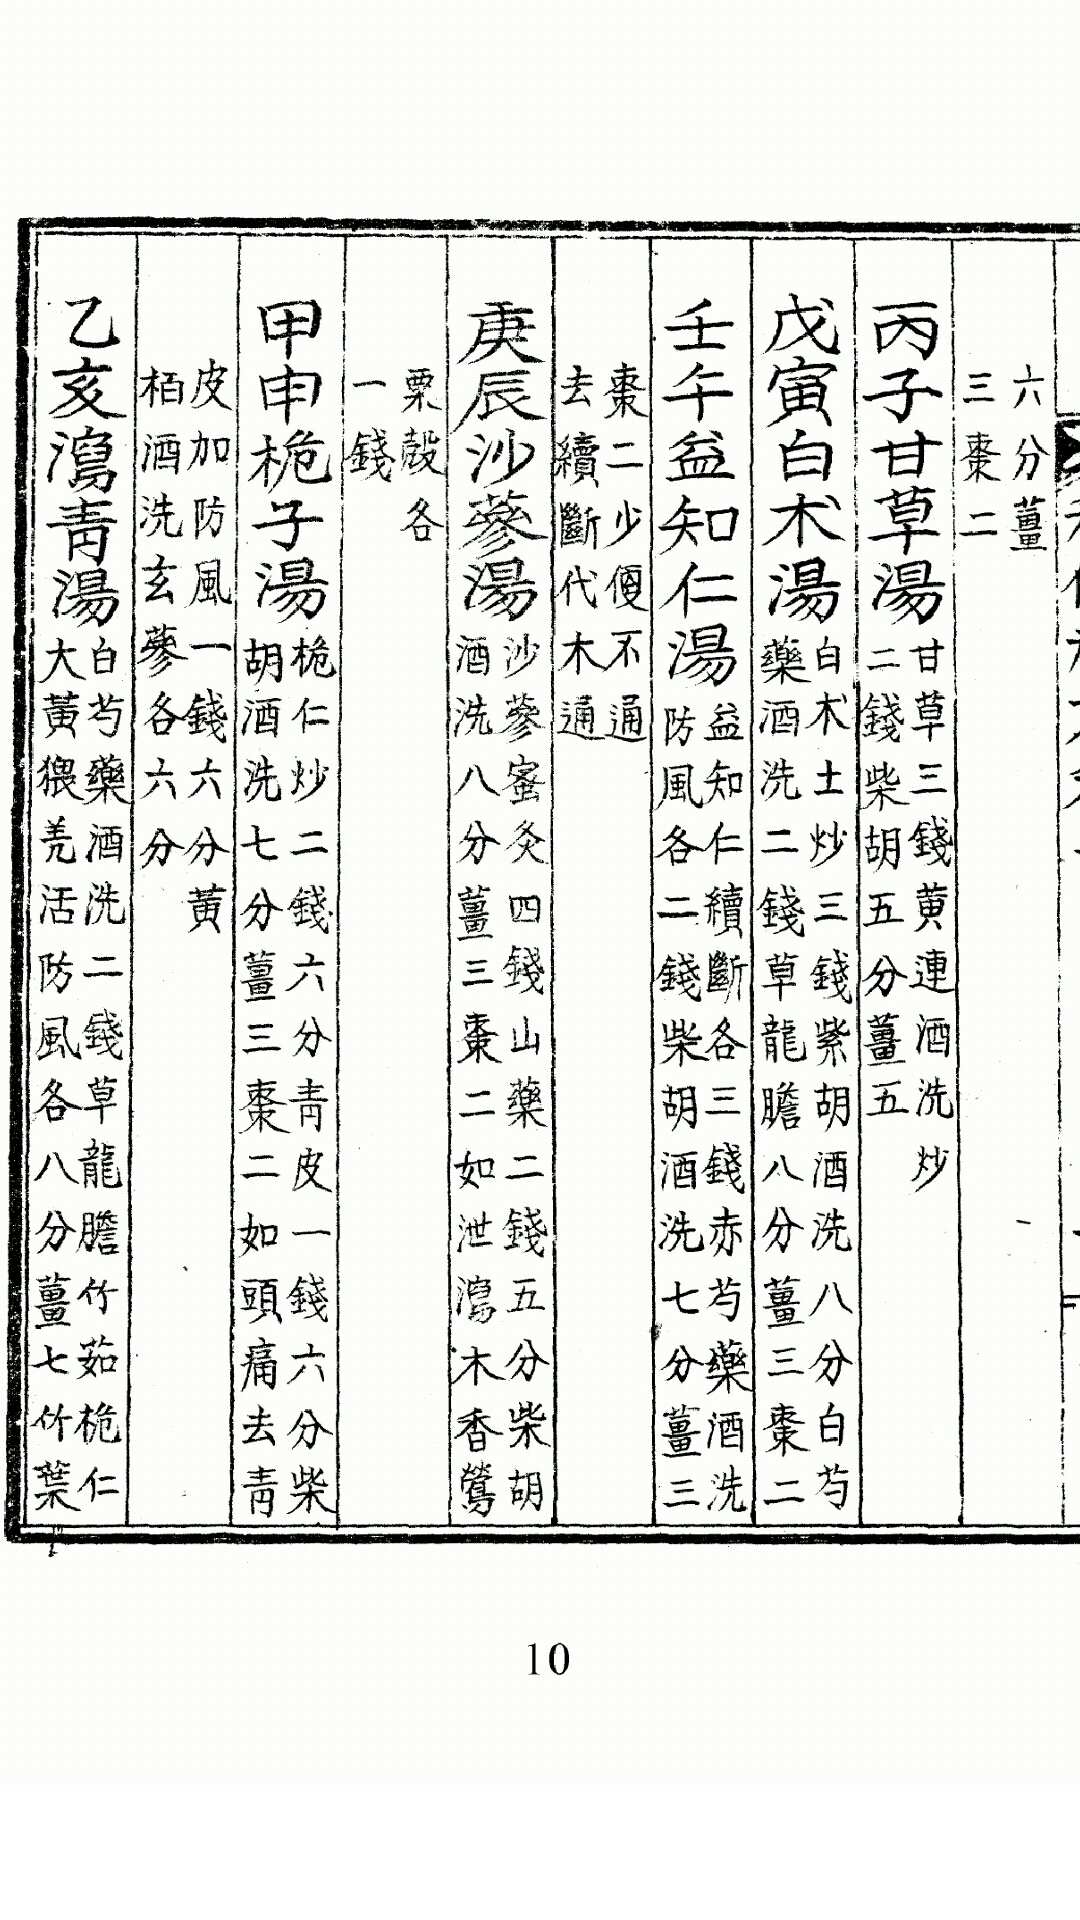 六分薑
三棗二
丙子甘草湯
甘草三錢黄連酒洗炒
二錢柴胡五分薑五
戊寅白朮湯
白朮土炒三錢紫胡酒洗八分白芍
藥酒洗二錢草龍膽八分薑三棗二
壬午益知仁湯
益知仁續斷各三錢赤芍藥酒洗
防風各二錢柴胡酒洗七分薑三
棗二少便不通
去續斷代木通
庚辰沙蔘湯
沙蔘蜜灸四錢山藥二錢五分柴胡
酒洗八分薑三棗二如泄瀉木香鶯
粟殼各
一錢
甲申梔子湯
梔仁炒二錢六分靑皮一錢六分柴
胡酒洗七分薑三棗二如頭痛去靑
皮加防風一錢六分黄
栢酒洗玄蔘各六分
乙亥瀉靑湯
白芍藥酒洗二錢草龍膽竹茹梔仁
大黃猥羌活防風各八分薑七竹葉
10